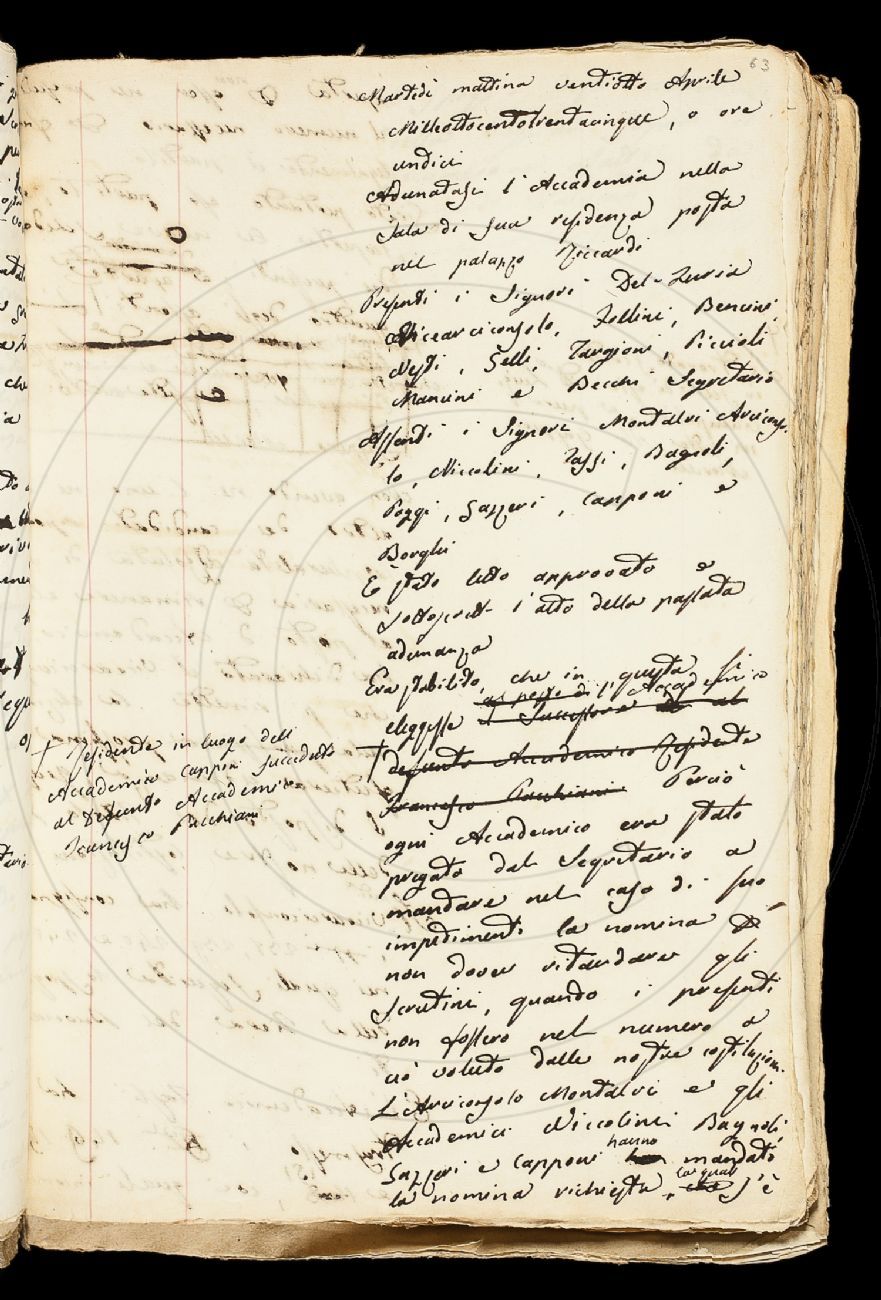 63
Martedì mattina ventiotto Aprile
Milleottocentotrentacinque, a ore
undici
Adunatasi l'Accademia nella
Sala di sua residenza posta
nel palazzo Riccardi
Presenti i Signori Del-Furia
Vicearciconsolo, Follini, Bencini,
Nesti, Gelli, Targioni, Piccioli
Mancini e Becchi Segretario
Assenti i Signori Montalvi Arciconso-
lo, Niccolini, Tassi, Bagnoli,
Poggi, Gazzeri, Capponi e
Borghi
È stato letto approvato e
sottoscritto l'atto della passata
adunanza
Era stabilito, che in questa si
l'Accademico
eleggesse il Successore al
defunto Accademico Residente
Francesco Pacchiani Perciò
ogni Accademico era stato
pregato dal Segretario a
mandare nel caso di suo
impedimento la nomina
non dover ritardare gli
Scrutini, quando i presenti
non fossero nel numero a
ciò voluto dalle nostre costituzioni.
L'Arciconsolo Montalvi e gli
Accademici Niccolini Bagnoli
hanno
Gazzeri e Capponi mandato
la qual
la nomina richiesta, che s'è
† Residente in luogo dell'
Accademico Capponi succeduto
al Defunto Accademico
Francesco Pacchiani